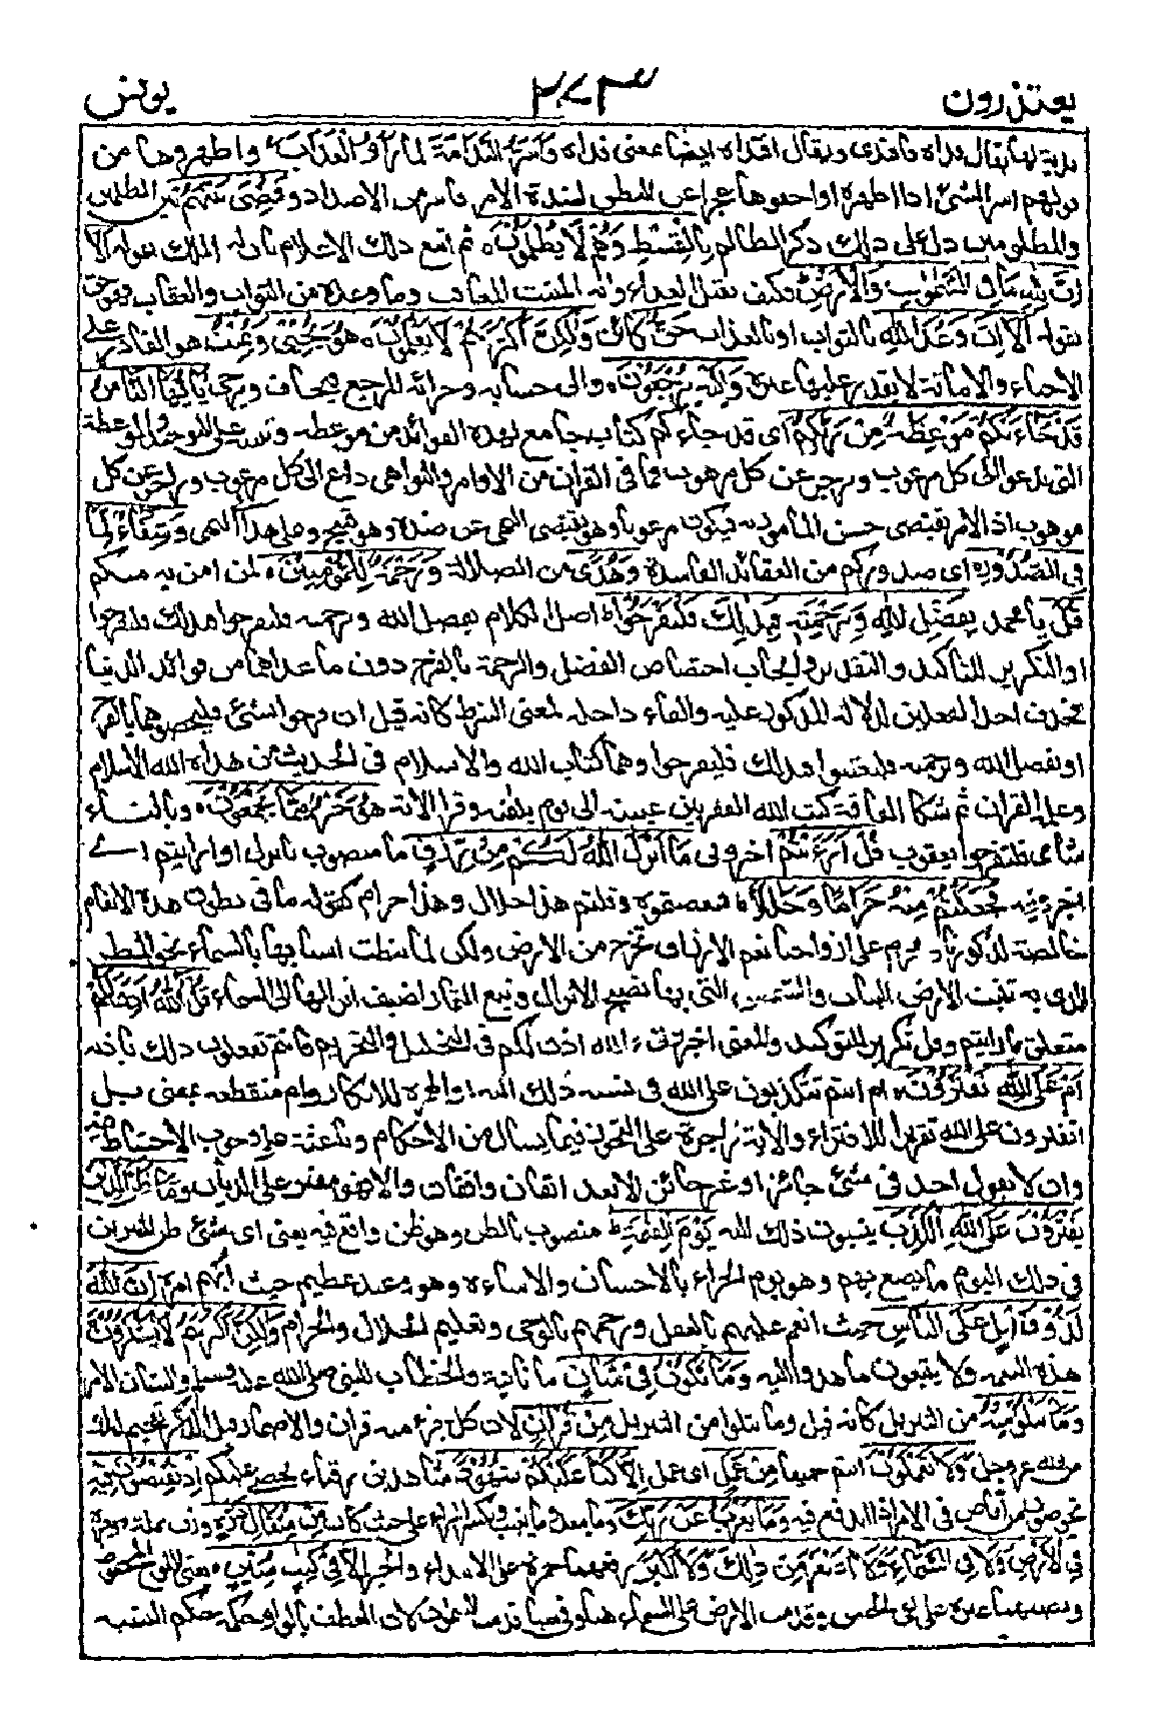 يعتذرون ٢٧٣ يونس
فدية لها يقال فداه فافتدى ويقال افتداه ايضا بمعنى فداه وَأَسَرُّوا النَّدَامَةَ لَمَّا رَأَوُا الْعَذَابَ واظهروها من
قولهم اسر الشئ اذا اظهره او اخفوها عجزا عن النطق لشدة الامر فاسر من الاضداد وَقُضِيَ بَيْنَهُمْ بين الظالمين
والمظلومين دل على ذلك ذكر الظالم بِالْقِسْطِ وَهُمْ لَا يُظْلَمُونَ ثم اتبع ذلك الاعلام بان له الملك بقوله أَلَا
إِنَّ لِلَّهِ مَا فِي السَّمَاوَاتِ وَالْأَرْضِ فكيف يقبل الفداء وانه المثيب المعاقب وما وعده من الثواب والعقاب فهو حق
بقوله أَلَا إِنَّ وَعْدَ اللَّهِ بالثواب او بالعذاب حَقٌّ كائن وَلَكِنَّ أَكْثَرَهُمْ لَا يَعْلَمُونَ هُوَ يُحْيِي وَيُمِيتُ هو القادر على
الاحياء والاماتة لا يقدر عليهما غيره وَإِلَيْهِ تُرْجَعُونَ والى حسابه وجزائه المرجع فيخاف ويرجى يَا أَيُّهَا النَّاسُ
قَدْ جَاءَتْكُمْ مَوْعِظَةٌ مِنْ رَبِّكُمْ اى قد جاءكم كتاب جامع لهذه الفوائد من موعظة وتنبيه على التوحيد والموعظة
التى تدعو الى كل مرغوب وتزجر عن كل مرهوب فما فى القران من الاوامر والنواهى داع الى كل مرغوب وزاجر عن كل
مرهوب اذ الامر يقتضى حسن المأمور به فيكون مرغوبا وهو يقتضى النهى عن ضده وهو قبيح وعلى هذا النهى وَشِفَاءٌ لِمَا
فِي الصُّدُورِ اى صدوركم من العقائد الفاسدة وَهُدًى من الضلالة وَرَحْمَةٌ لِلْمُؤْمِنِينَ لمن امن به منكم
قُلْ يا محمد بِفَضْلِ اللَّهِ وَبِرَحْمَتِهِ فَبِذَلِكَ فَلْيَفْرَحُوا اصل الكلام بفضل الله وبرحمته فليفرحوا بذلك فليفرحوا
والتكرير للتاكيد والتقدير ولايجاب اختصاص الفضل والرحمة بالفرح دون ما عداهما من فوائد الدنيا
فحذف احد الفعلين لدلالة المذكور عليه والفاء داخلة لمعنى الشرط كانه قيل ان فرحوا بشئ فليخصوهما بالفرح
او بفضل الله وبرحمته فليعتنوا فبذلك فليفرحوا وهما كتاب الله والاسلام فى الحديث من هداه الله للاسلام
وعلمه القران ثم شكا الفاقة كتب الله الفقر بين عينيه الى يوم يلقاه وقرأ الاية هُوَ خَيْرٌ مِمَّا يَجْمَعُونَ وبالتاء
شامى فلتفرحوا يعقوب قُلْ أَرَأَيْتُمْ اخبرونى مَا أَنْزَلَ اللَّهُ لَكُمْ مِنْ رِزْقٍ ما منصوب بانزل او ارايتم اى
اخبرونيه فَجَعَلْتُمْ مِنْهُ حَرَامًا وَحَلَالًا فبعضتموه وقلتم هذا حلال وهذا حرام كقوله ما فى بطون هذه الانعام
خالصة لذكورنا ومحرم على ازواجنا نعم الارزاق تخرج من الارض ولكن لما نيطت اسبابها بالسماء نحو المطر
الذى به تنبت الارض النبات والشمس التى بها تنضج الانزال وتينع الثمار اضيف انزالها الى السماء قُلْ آللَّهُ أَذِنَ لَكُمْ
متعلق بارايتم وقل تكرير للتوكيد والمعنى اخبرونى ءالله اذن لكم فى التحليل والتحريم فانتم تفعلون ذلك باذنه
أَمْ عَلَى اللَّهِ تَفْتَرُونَ ام انتم تكذبون على الله فى نسبة ذلك اليه او الهمزة للانكار وام منقطعة بمعنى بل
اتفترون على الله تقريرا للافتراء والاية زاجرة على التجوز فيما يسأل من الاحكام وباعثة على وجوب الاحتياط فيه
وان لا يقول احد فى شئ جائز او غير جائز الا بعد ايقان واتقان والا فهو مفتر على الديان وَمَا ظَنُّ الَّذِينَ
يَفْتَرُونَ عَلَى اللَّهِ الْكَذِبَ ينسبون ذلك اليه يَوْمَ الْقِيَامَةِ منصوب بالظن وهو ظن واقع فيه يعنى اى شئ ظن المفترين
فى ذلك اليوم ما يصنع بهم وهو يوم الجزاء بالاحسان والاساءة وهو وعيد عظيم حيث ابهم امره إِنَّ اللَّهَ
لَذُو فَضْلٍ عَلَى النَّاسِ حيث انعم عليهم بالعقل ورحمهم بالوحى وتعليم الحلال والحرام وَلَكِنَّ أَكْثَرَهُمْ لَا يَشْكُرُونَ
هذه النعمة ولا يتبعون ما هدوا اليه وَمَا تَكُونُ فِي شَأْنٍ ما نافية والخطاب للنبى صلى الله عليه وسلم والشان الامر
وَمَا تَتْلُو مِنْهُ من التنزيل كانه قيل وما تتلوا من التنزيل مِنْ قُرْآنٍ لان كل جزء منه قران والاضمار قبل الذكر تفخيم له او
من الله عز وجل وَلَا تَعْمَلُونَ انتم جميعا مِنْ عَمَلٍ اى عمل إِلَّا كُنَّا عَلَيْكُمْ شُهُودًا شاهدين رقباء نحصى عليكم إِذْ تُفِيضُونَ فِيهِ
تخوضون من افاض فى الامر اذا اندفع فيه وَمَا يَعْزُبُ عَنْ رَبِّكَ وما يبعد وما يغيب وبكسر الزاى على حيث كان مِنْ مِثْقَالِ ذَرَّةٍ وزن نملة صغيرة
فِي الْأَرْضِ وَلَا فِي السَّمَاءِ وَلَا أَصْغَرَ مِنْ ذَلِكَ وَلَا أَكْبَرَ رفعهما حمزة على الابتداء والخبر إِلَّا فِي كِتَابٍ مُبِينٍ يعنى اللوح المحفوظ
ونصبهما غيره على نفى الجنس وقدمت الارض على السماء هنا وفى سبا قدمت السموات لان العطف بالواو حكمه حكم التثنية